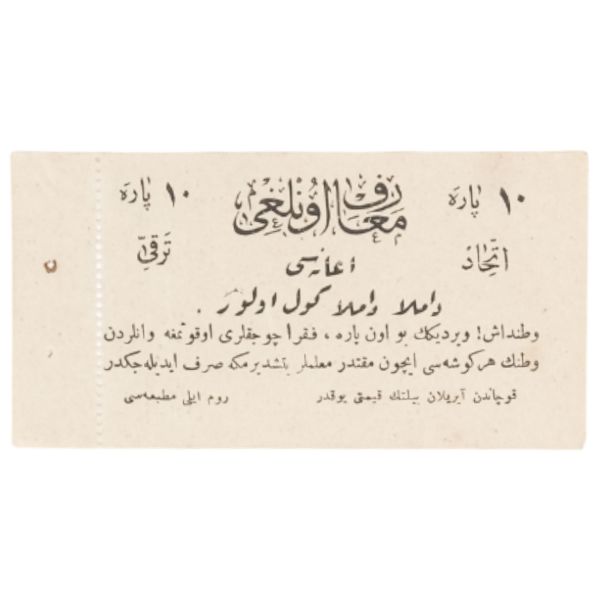 ١٠ پارَه معارف اونلغی ١٠ پارَه
اتّحاد ترقیّ
اعانه سی
داملا داملا كول اولور .
وطنداش! ویردیكك بو اون پاره ، فقرا چوجقلری اوقوتمغه وانلردن
وطنك هر كوشه سی ایچون مقتدر معلملر یتشدیرمكه صرف ایدیله جكدر
قوچاندن آیریلان بیلتك قیمتی یوقدر روم ایلی مطبعه سی